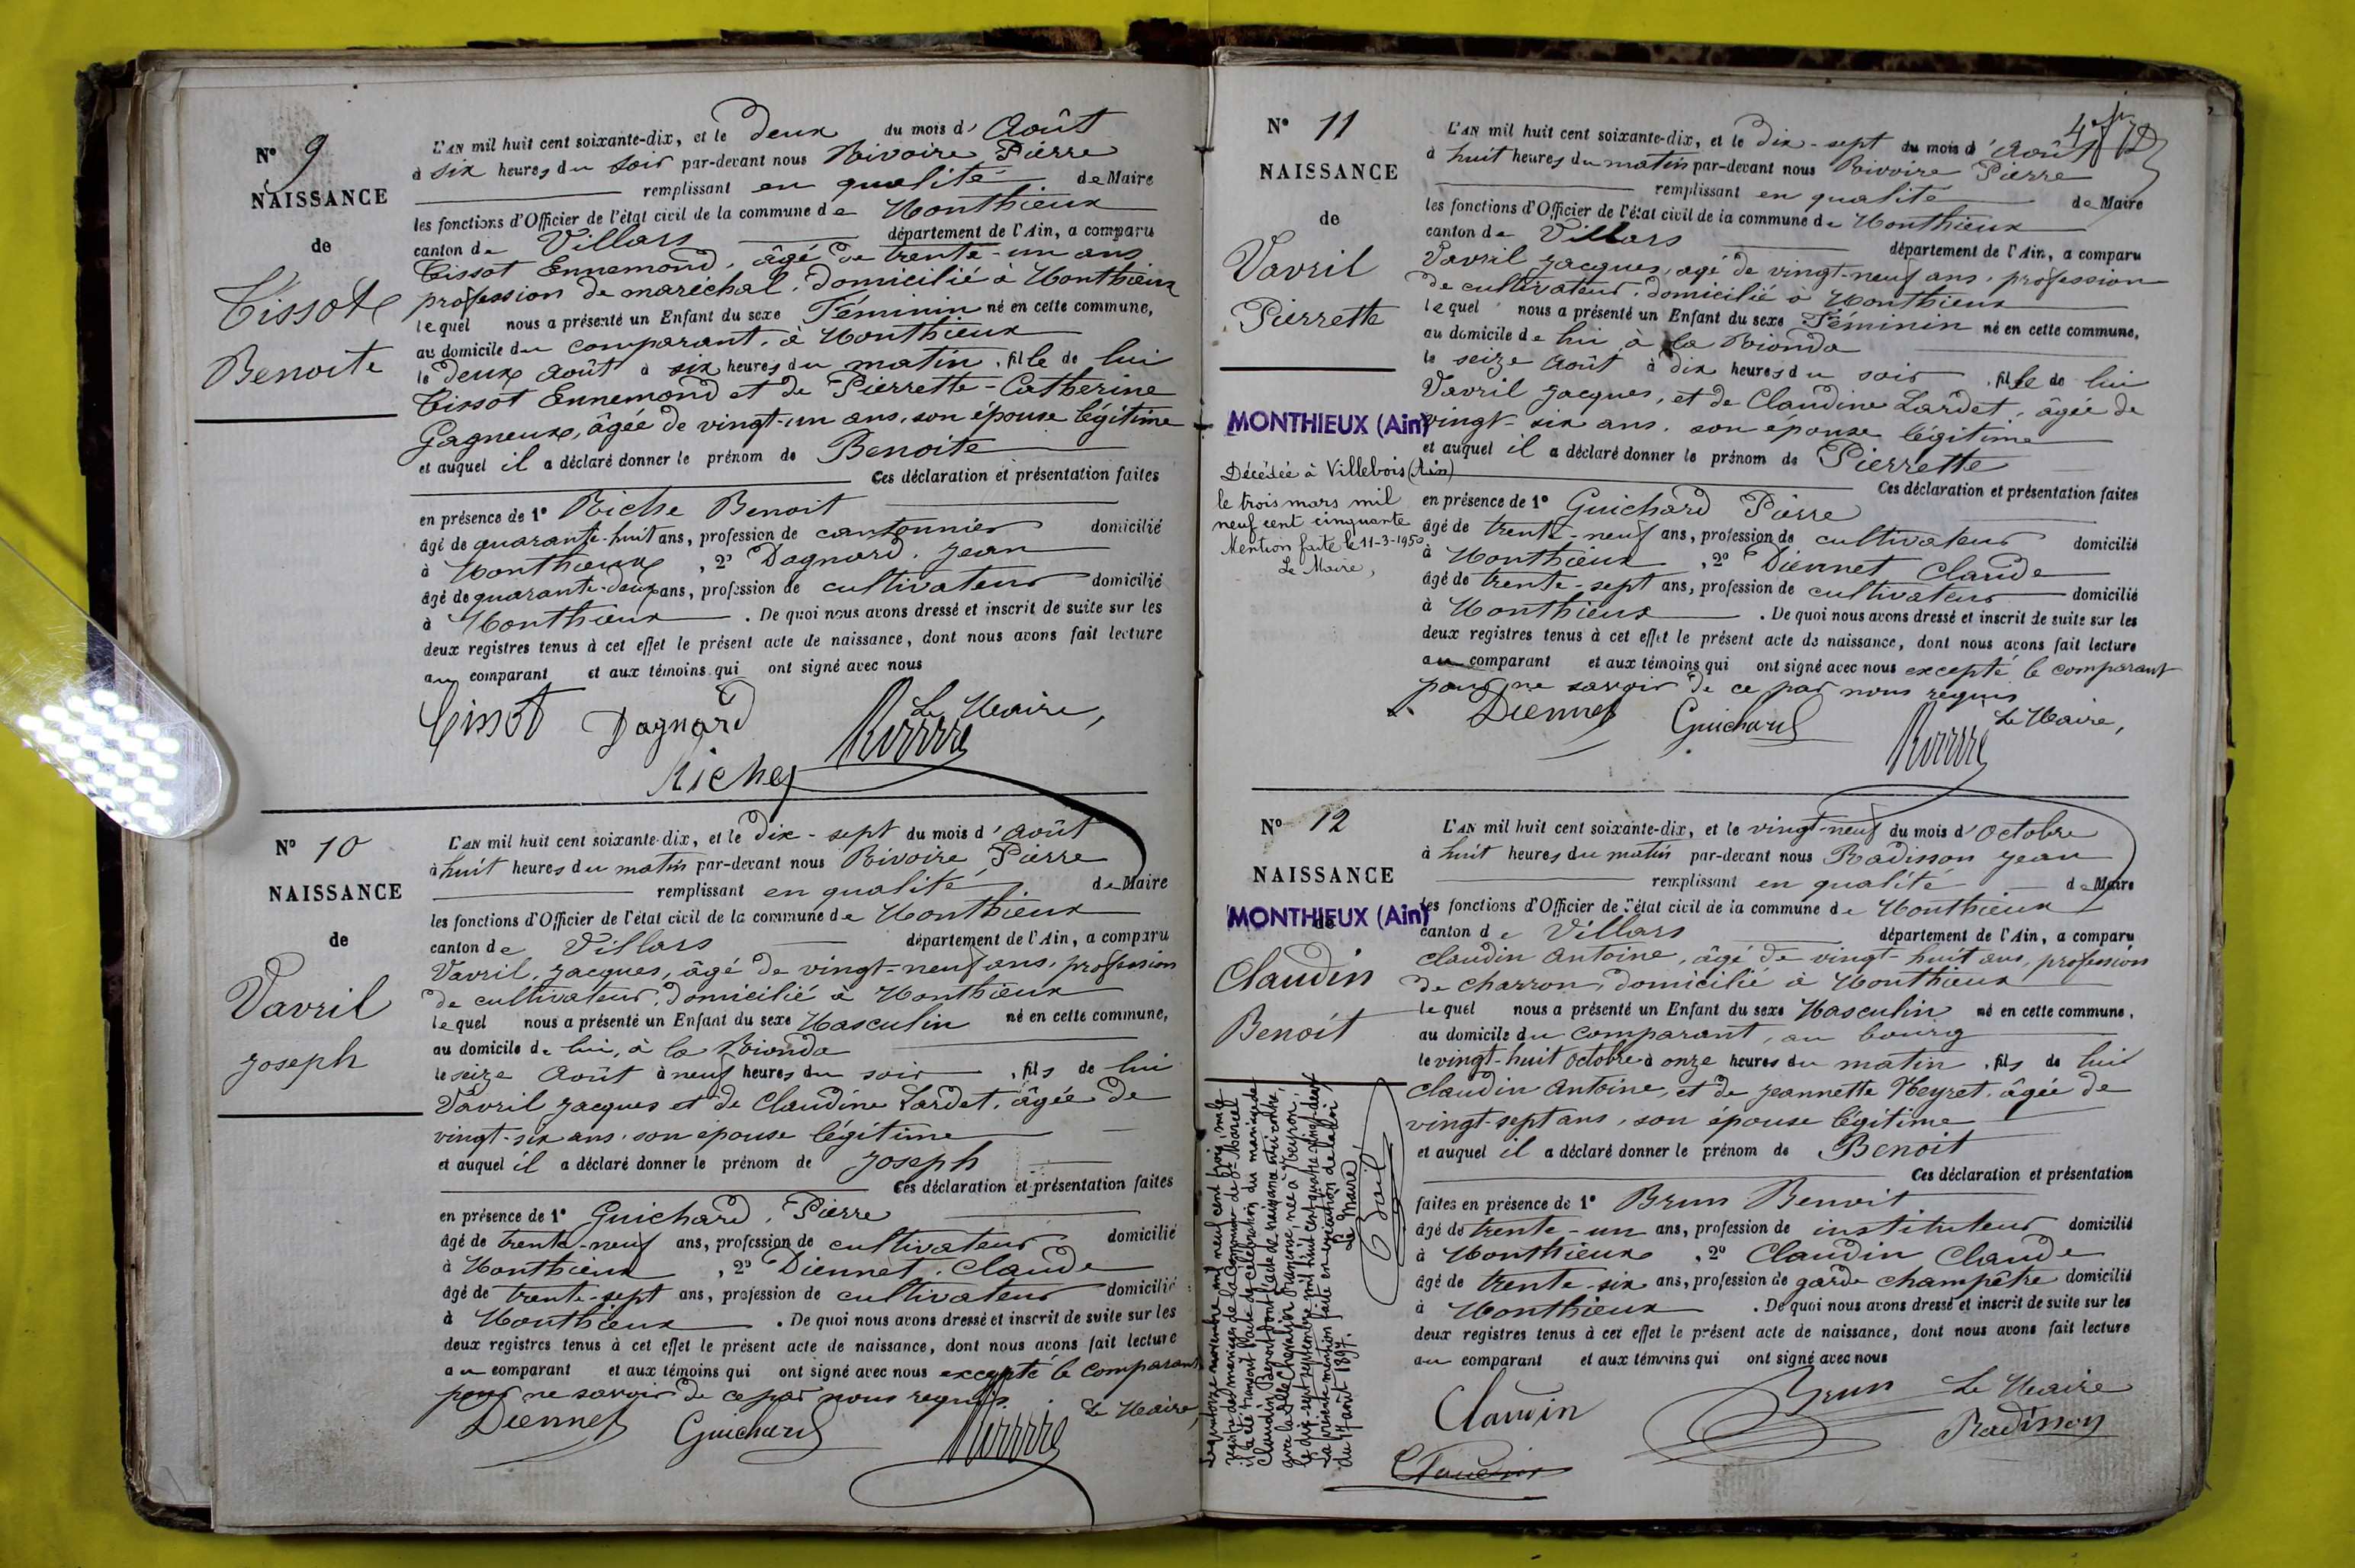 N° 9
NAISSANCE
de
Tissot
Benoite
L'AN mil huit cent soixante-dix, et le deux du mois d'Août
à six heures du soir par-devant nous Rivoire Pierre
remplissant en qualité de Maire
les fonctions d'Officier de l'état civil de la commune de Monthieux
canton de Villars département de l'Ain, a comparu
Tissot Ennemond, âgé de trente-un ans
profession de maréchal, domicilié à Monthieux
lequel nous a présenté un Enfant du sexe Féminin né en cette commune,
au domicile du comparant, à Monthieux
le deux Août à six heures du matin, fille de lui
Tissot Ennemond et de Pierrette-Catherine
Gagneux, âgée de vingt-un ans, son épouse légitime
et auquel il a déclaré donner le prénom de Benoite
Ces déclaration et présentation faites
en présence de 1° Riche Benoit
âgé de quarante-huit ans, profession de cantonnier domicilié
à Monthieux, 2° Dagnard, Jean
âgé de quarante-deux ans, profession de cultivateur domicilié
à Monthieux. De quoi nous avons dressé et inscrit de suite sur les
deux registres tenus à cet effet le présent acte de naissance, dont nous avons fait lecture
au comparant et aux témoins qui ont signé avec nous
Le Maire,
Tissot Dagnard
Riche
N° 10
NAISSANCE
de
Vavril
Joseph
L'AN mil huit cent soixante-dix, et le dix-sept du mois d'Août
à huit heures du matin par-devant nous Rivoire Pierre
remplissant en qualité de Maire
les fonctions d'Officier de l'état civil de la commune de Monthieux
canton de Villars département de l'Ain, a comparu
Vavril, Jacques, âgé de vingt-neuf ans, profession
de cultivateur, domicilié à Monthieux
lequel nous a présenté un Enfant du sexe Masculin né en cette commune,
au domicile de lui, à la Rionda
le seize Août à neuf heures du soir, fils de lui
Vavril Jacques et de Claudine Lardet, âgée de
vingt-six ans, son épouse légitime
et auquel il a déclaré donner le prénom de Joseph
Ces déclaration et présentation faites
en présence de 1° Guichard, Pierre
âgé de trente-neuf ans, profession de cultivateur domicilié
à Monthieux, 2° Diennet, Claude
âgé de trente-sept ans, profession de cultivateur domicilié
à Monthieux. De quoi nous avons dressé et inscrit de suite sur les
deux registres tenus à cet effet le présent acte de naissance, dont nous avons fait lecture
au comparant et aux témoins qui ont signé avec nous excepté le comparant
pour ne savoir de ce par nous requis
Le Maire,
Diennet Guichard
N° 11
NAISSANCE
de
Vavril
Pierrette
MONTHIEUX (Ain)
Décédée à Villebois (Ain)
le trois mars mil
neuf cent cinquante
Mention faite le 11-3-1950
Le Maire,
L'AN mil huit cent soixante-dix, et le dix-sept du mois d'Août
à huit heures du matin par-devant nous Rivoire Pierre
remplissant en qualité de Maire
les fonctions d'Officier de l'état civil de la commune de Monthieux
canton de Villars département de l'Ain, a comparu
Vavril Jacques, âgé de vingt-neuf ans, profession
de cultivateur, domicilié à Monthieux
lequel nous a présenté un Enfant du sexe Féminin né en cette commune,
au domicile de lui à la Rionda
le seize Août à dix heures du soir, fille de lui
Vavril Jacques, et de Claudine Lardet, âgée de
vingt-six ans, son épouse légitime
et auquel il a déclaré donner le prénom de Pierrette
Ces déclaration et présentation faites
en présence de 1° Guichard Pierre
âgé de trente-neuf ans, profession de cultivateur domicilié
à Monthieux, 2° Diennet Claude
âgé de trente-sept ans, profession de cultivateur domicilié
à Monthieux. De quoi nous avons dressé et inscrit de suite sur les
deux registres tenus à cet effet le présent acte de naissance, dont nous avons fait lecture
au comparant et aux témoins qui ont signé avec nous excepté le comparant
pour ne savoir de ce par nous requis
Le Maire,
Diennet Guichard
N° 12
NAISSANCE
de
MONTHIEUX (Ain)
Claudin
Benoit
L'AN mil huit cent soixante-dix, et le vingt-neuf du mois d'Octobre
à huit heures du matin par-devant nous Radisson Jean
remplissant en qualité de Maire
les fonctions d'Officier de l'état civil de la commune de Monthieux
canton de Villars département de l'Ain, a comparu
Claudin Antoine, âgé de vingt-huit ans, profession
de charron, domicilié à Monthieux
lequel nous a présenté un Enfant du sexe Masculin né en cette commune,
au domicile du comparant, au bourg
le vingt-huit Octobre à onze heures du matin, fils de lui
Claudin Antoine, et de Jeannette Neyret, âgée de
vingt-sept ans, son épouse légitime
et auquel il a déclaré donner le prénom de Benoit
Ces déclaration et présentation
faites en présence de 1° Brun Benoit
âgé de trente-un ans, profession de instituteur domicilié
à Monthieux, 2° Claudin Claude
âgé de trente-six ans, profession de garde champêtre domicilié
à Monthieux. De quoi nous avons dressé et inscrit de suite sur les
deux registres tenus à cet effet le présent acte de naissance, dont nous avons fait lecture
au comparant et aux témoins qui ont signé avec nous
Claudin Brun Le Maire
Radisson
Claudin
Le quatorze novembre mil neuf cent trois, sur le
registre des mariages de la Commune de St Marcel
il a été transcrit l'acte de célébration du mariage de
Claudin Benoit dont l'acte de naissance est ci-contre,
avec la dlle Chevalier Françoise, née à Neyron,
le dix-sept septembre mil huit cent quatre vingt deux
La présente mention faite en exécution de la loi
du 17 août 1897.
Le Maire